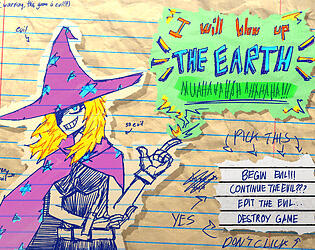 (warning, this game is evil!!)
evil
I will blow up
THE EARTH
so evil
PICK THIS
BEGIN EVIL!!!
CONTINUE THE EVIL???
EDIT THE EVIL..
YES
DESTROY GAME
DON'T CLICK